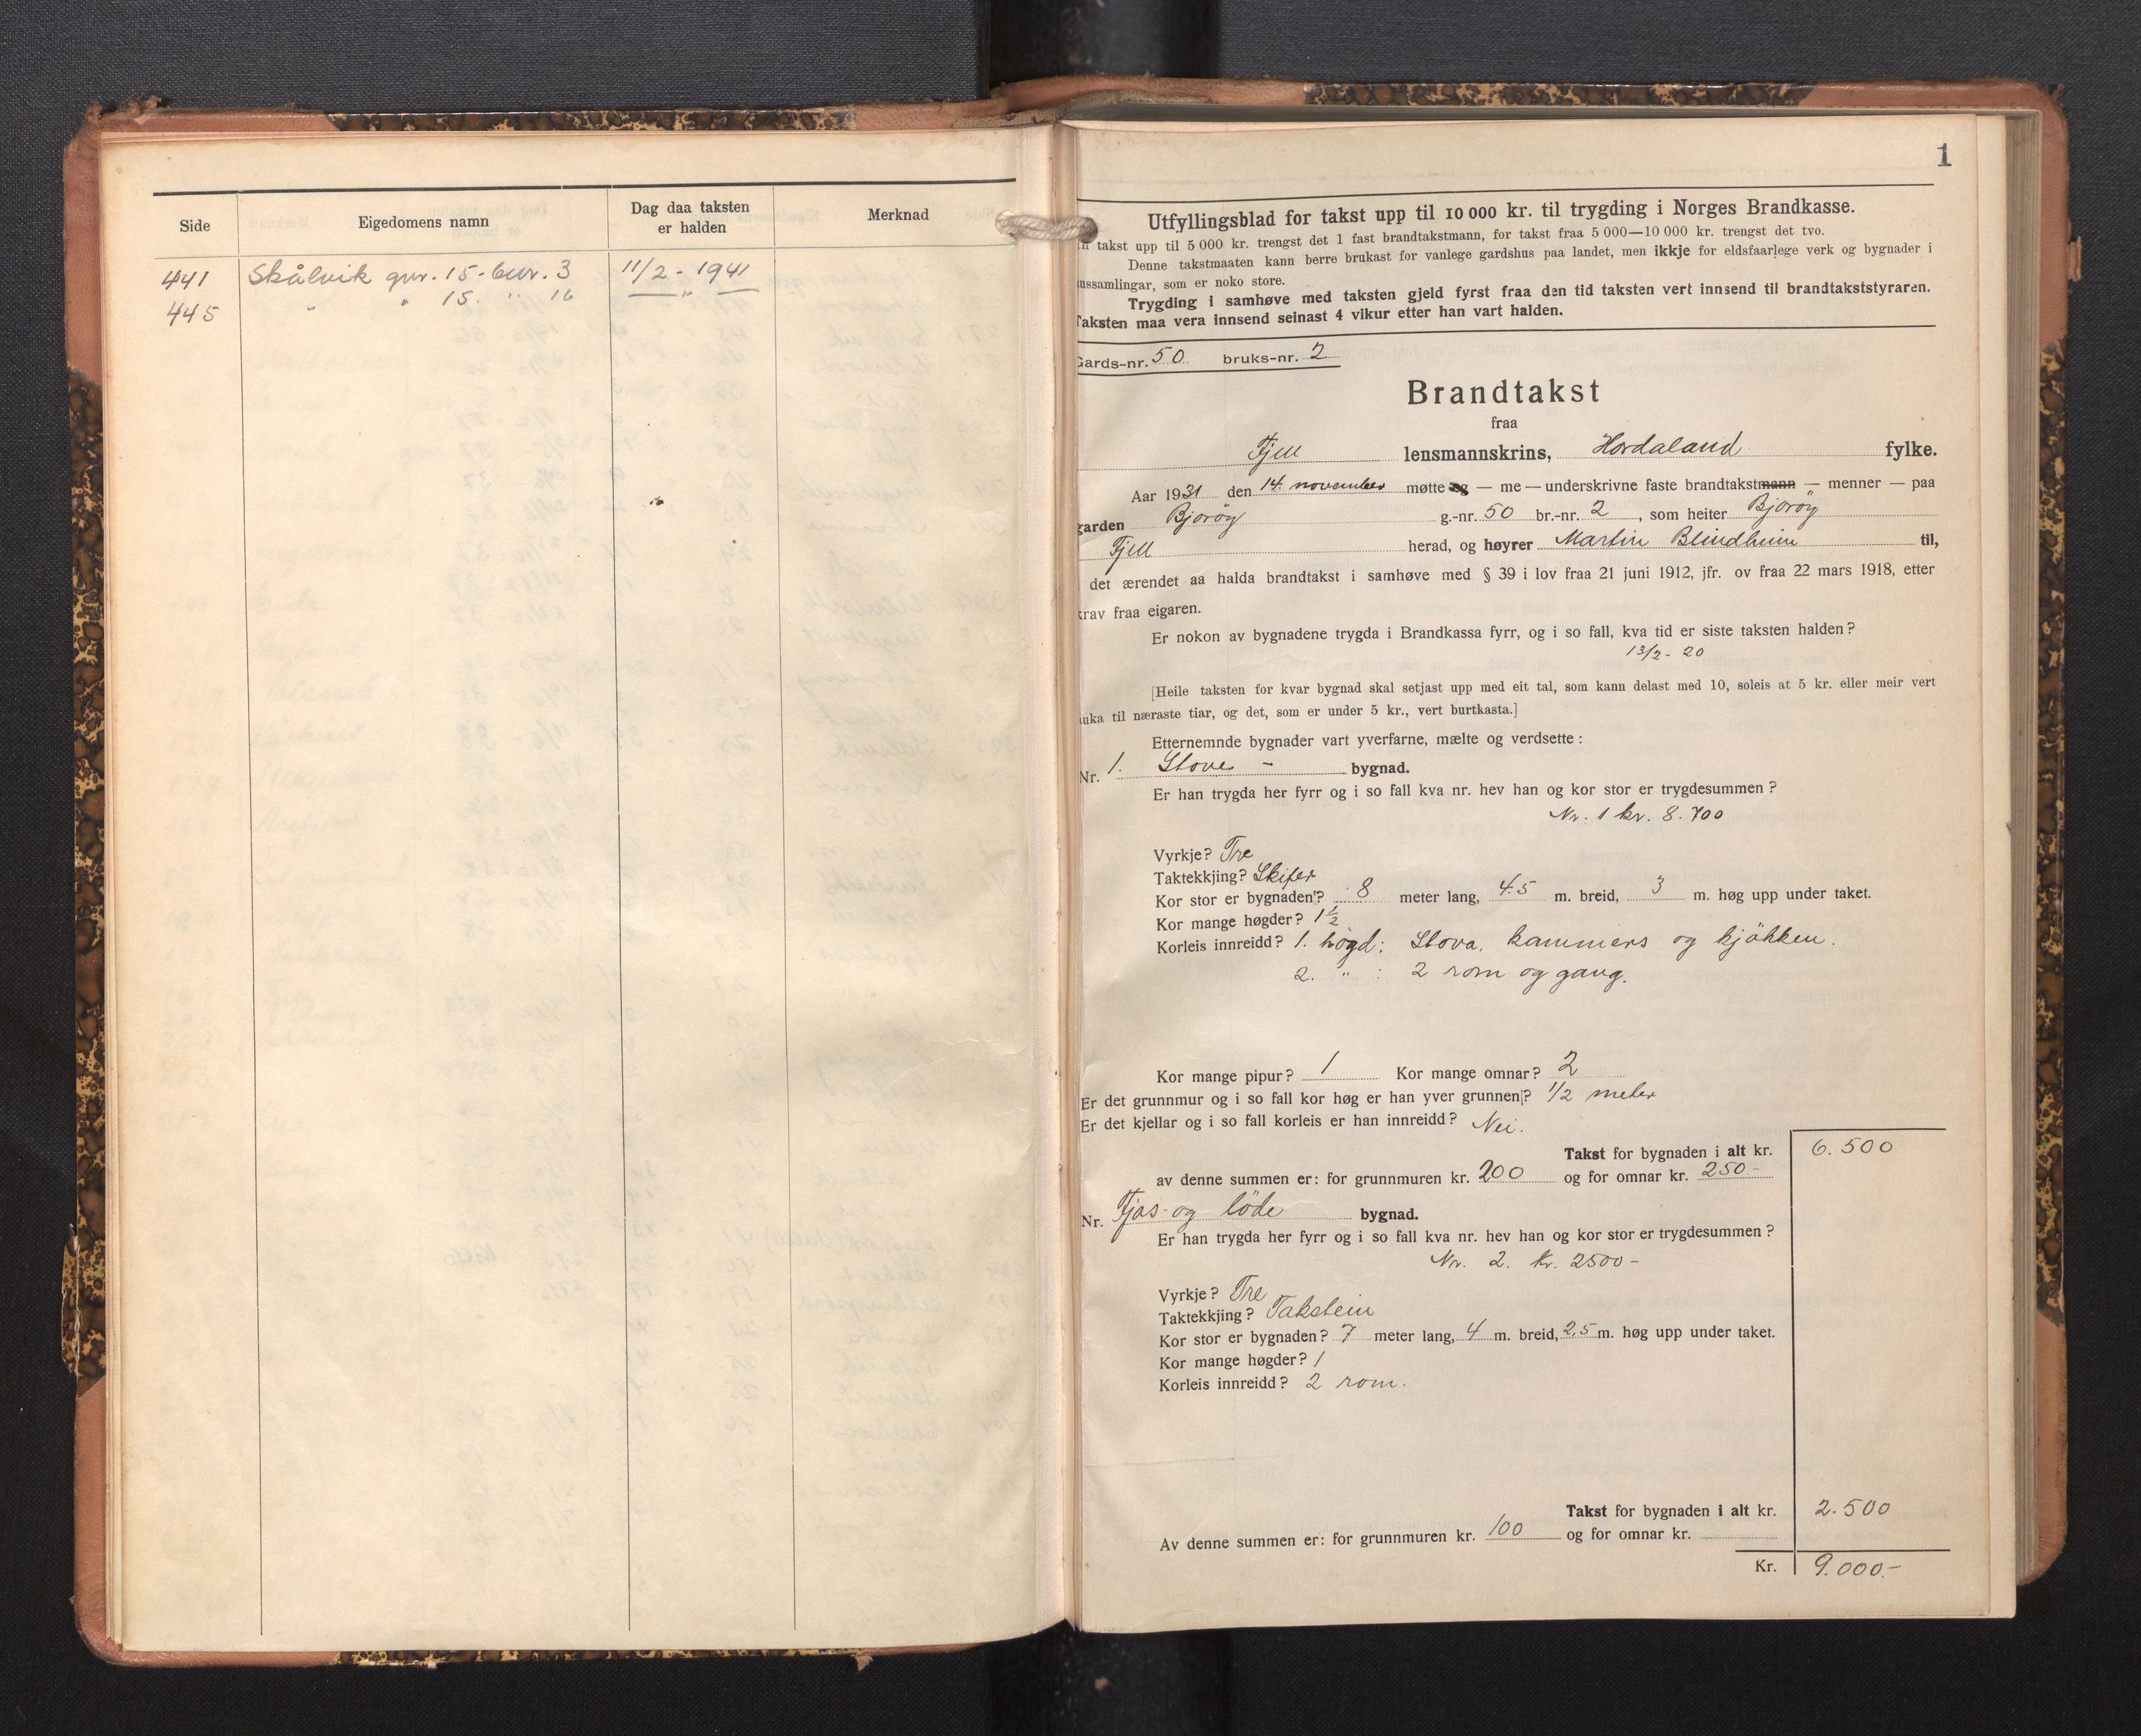 Side Eigedomens namn Dag daa taksten er halden Merknad
441 Skålvik gnr. 15 - bnr. 3 11/2 - 1941
445 " " 15. " 16 — " —
1
Utfyllingsblad for takst upp til 10 000 kr. til trygding i Norges Brandkasse.
takst upp til 5 000 kr. trengst det 1 fast brandtakstmann, for takst fraa 5 000—10 000 kr. trengst det tvo.
Denne takstmaaten kann berre brukast for vanlege gardshus paa landet, men ikkje for eldsfaarlege verk og bygnader i
ussamlingar, som er noko store.
Trygding i samhøve med taksten gjeld fyrst fraa den tid taksten vert innsend til brandtakststyraren.
Taksten maa vera innsend seinast 4 vikur etter han vart halden.
Gards-nr. 50 bruks-nr. 2
Brandtakst
fraa
Fjell lensmannskrins, Hordaland fylke.
Aar 1931 den 14. november møtte eg — me — underskrivne faste brandtakstmann — menner — paa
garden Bjorøy g.-nr. 50 br.-nr. 2, som heiter Bjorøy
Fjell herad, og høyrer Martin Blindheim til,
det ærendet aa halda brandtakst i samhøve med § 39 i lov fraa 21 juni 1912, jfr. ov fraa 22 mars 1918, etter
krav fraa eigaren.
Er nokon av bygnadene trygda i Brandkassa fyrr, og i so fall, kva tid er siste taksten halden?
13/2 - 20
[Heile taksten for kvar bygnad skal setjast upp med eit tal, som kann delast med 10, soleis at 5 kr. eller meir vert
auka til næraste tiar, og det, som er under 5 kr., vert burtkasta.]
Etternemnde bygnader vart yverfarne, mælte og verdsette:
Nr. 1. Stove - bygnad.
Er han trygda her fyrr og i so fall kva nr. hev han og kor stor er trygdesummen?
Nr. 1 kr. 8.700
Vyrkje? Tre
Taktekkjing? Skifer
Kor stor er bygnaden? 8 meter lang, 4.5 m. breid, 3 m. høg upp under taket.
Kor mange høgder? 1½
Korleis innreidd? 1. högd: Stova, kammers og kjökken.
2. " : 2 rom og gang.
Kor mange pipur? 1 Kor mange omnar? 2
Er det grunnmur og i so fall kor høg er han yver grunnen? 1/2 meter
Er det kjellar og i so fall korleis er han innreidd? Nei.
Takst for bygnaden i alt kr. 6.500
av denne summen er: for grunnmuren kr. 200 og for omnar kr. 250-
Nr. Fjøs- og löde bygnad.
Er han trygda her fyrr og i so fall kva nr. hev han og kor stor er trygdesummen?
Nr. 2. kr. 2500-
Vyrkje? Tre
Taktekkjing? Takstein
Kor stor er bygnaden? 7 meter lang, 4 m. breid, 2,5 m. høg upp under taket.
Kor mange høgder? 1
Korleis innreidd? 2 rom.
Takst for bygnaden i alt kr. 2.500
Av denne summen er: for grunnmuren kr. 100 og for omnar kr.
Kr. 9.000.-